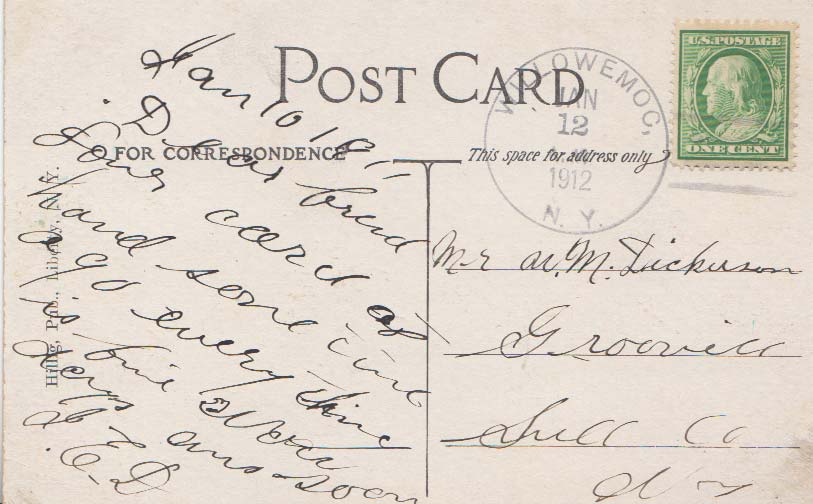 POST CARD
FOR CORRESPONDENCE
This space for address only
U.S. POSTAGE
ONE CENT
WILLOWEMOC,
JAN
12
1912
N. Y.
Hillig, Pub., Liberty, N. Y.
Jan 10 191
Dear freind
Your card at
hand some time
ago everything
is fine
ans soon
E. D
Mr W. M. Dickerson
Groovill
Sull Co
N Y